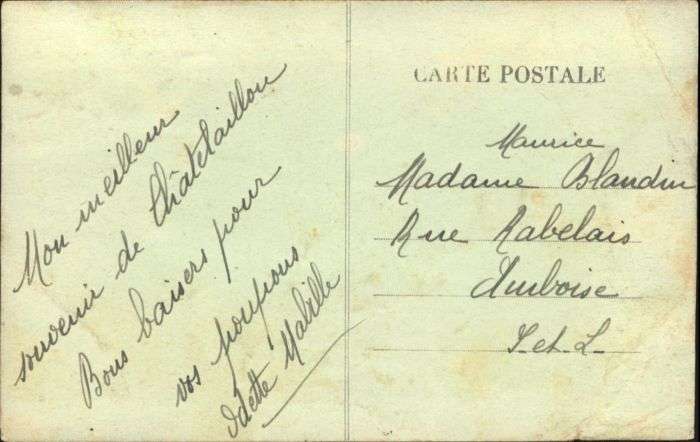 Mon meilleur
souvenir de Châtelaillon
Bons baisers pour
vos poupons
Odette Mabille
CARTE POSTALE
Maurice
Madame Blandin
Rue Rabelais
Amboise
I-et-L-